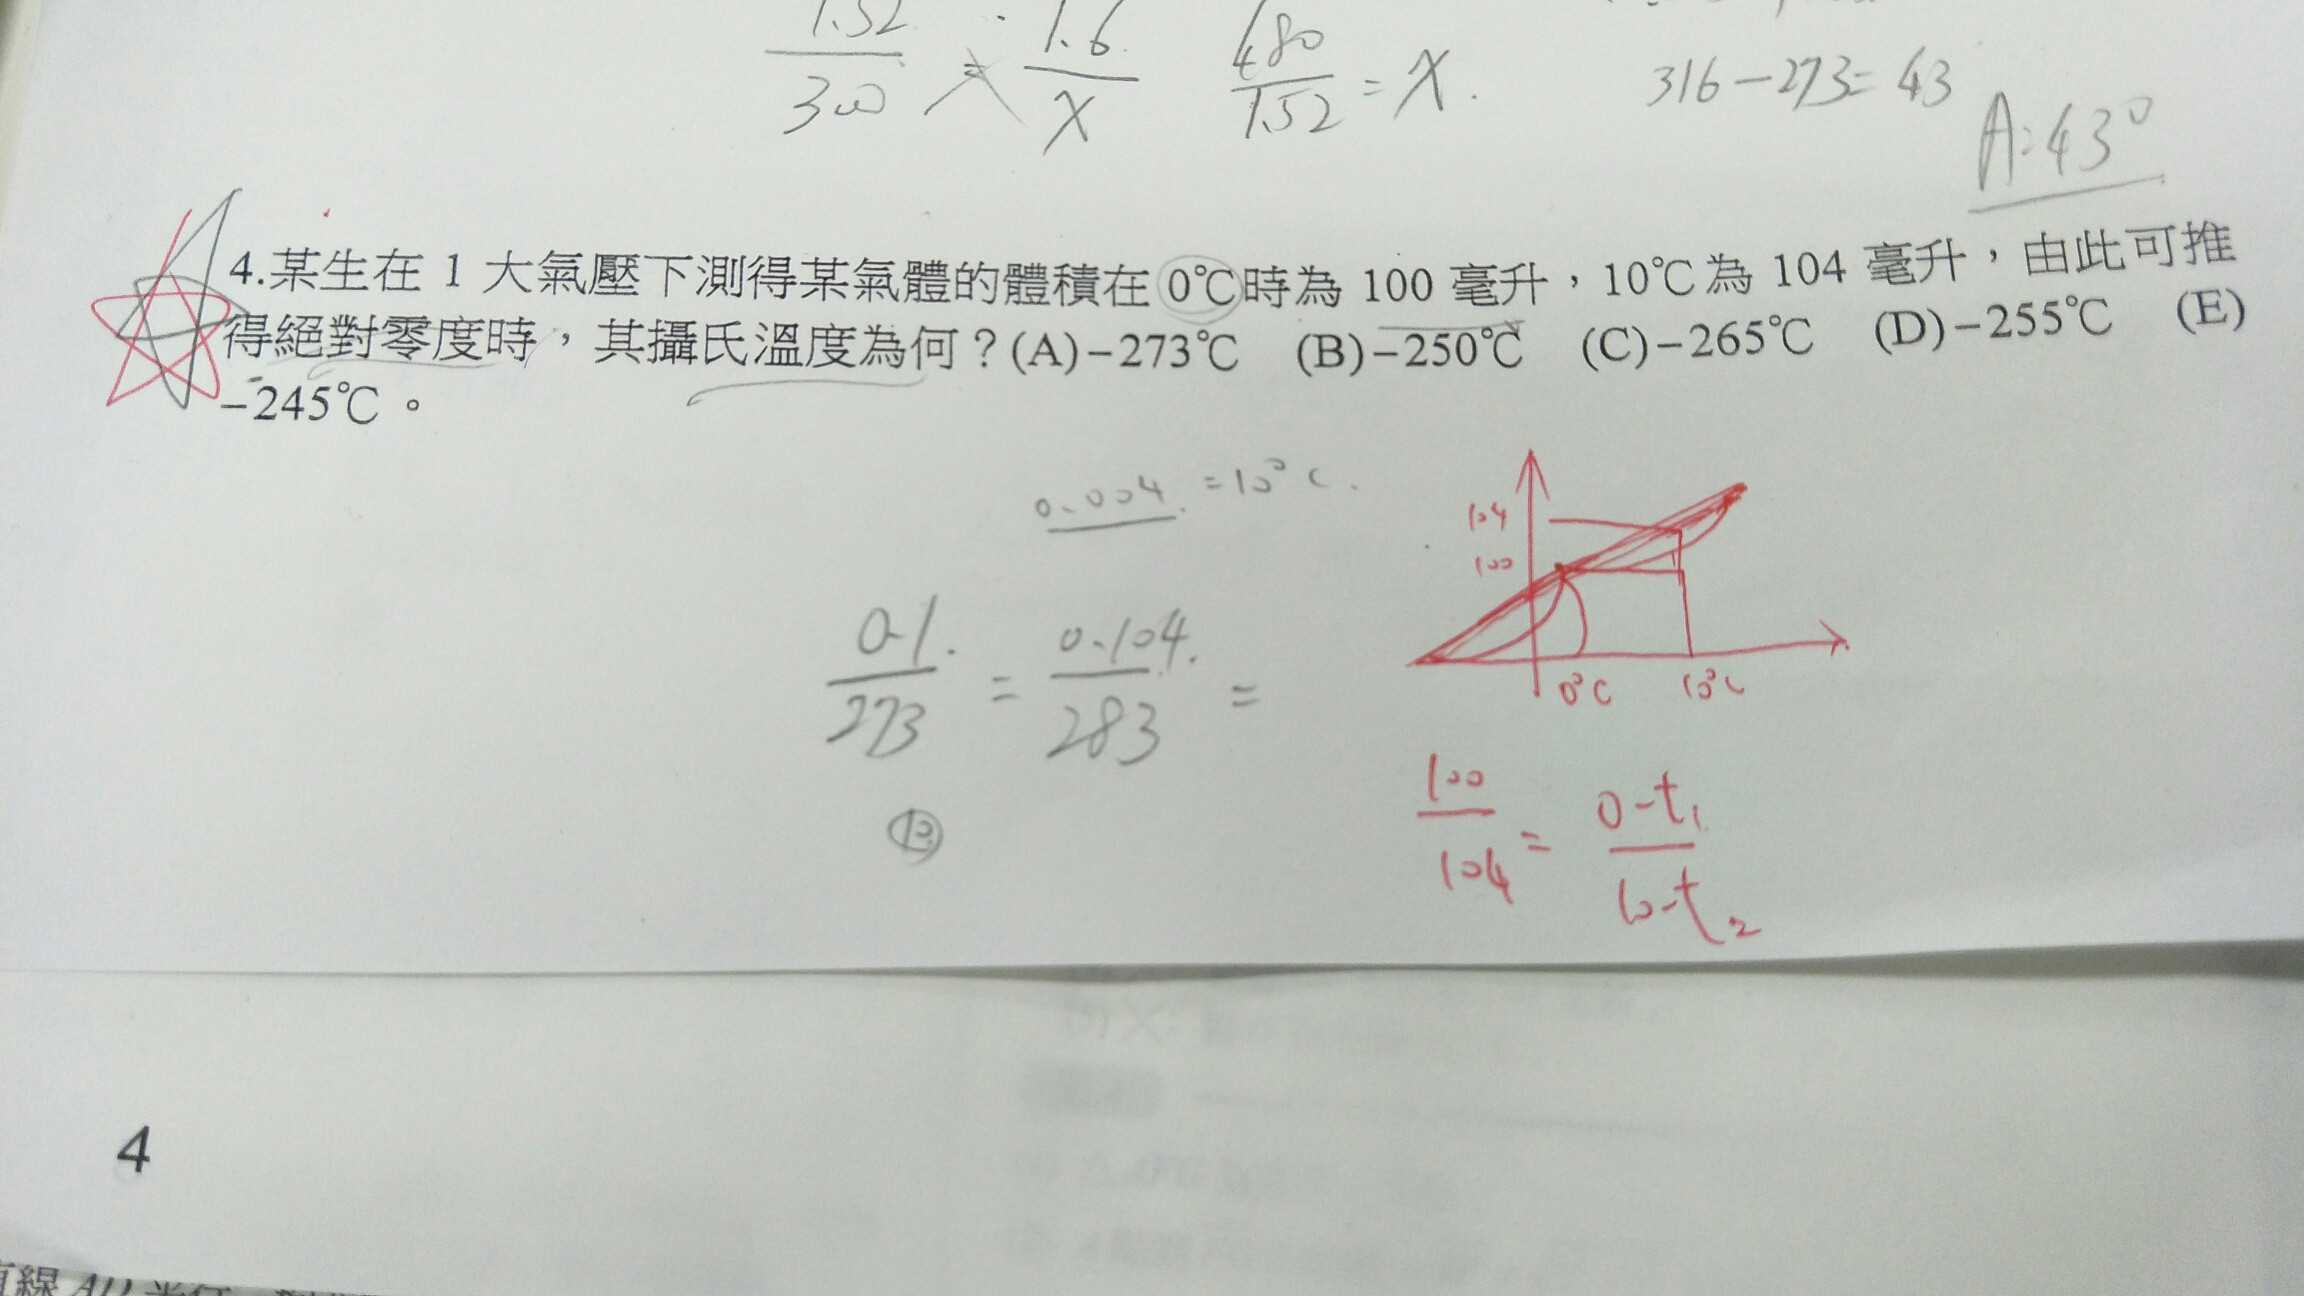 1.52 / 300 = 1.6 / X 480 / 1.52 = X. 316-273=43
A:43°
4.某生在 1 大氣壓下測得某氣體的體積在 0℃時為 100 毫升，10℃為 104 毫升，由此可推
得絕對零度時，其攝氏溫度為何？(A)−273℃ (B)−250℃ (C)−265℃ (D)−255℃ (E)
−245℃。
0.004 =10°C.
104
100
0°C 10°C
0.1 / 273 = 0.104 / 283 =
100 / 104 = 0-t1 / 10-t2
4